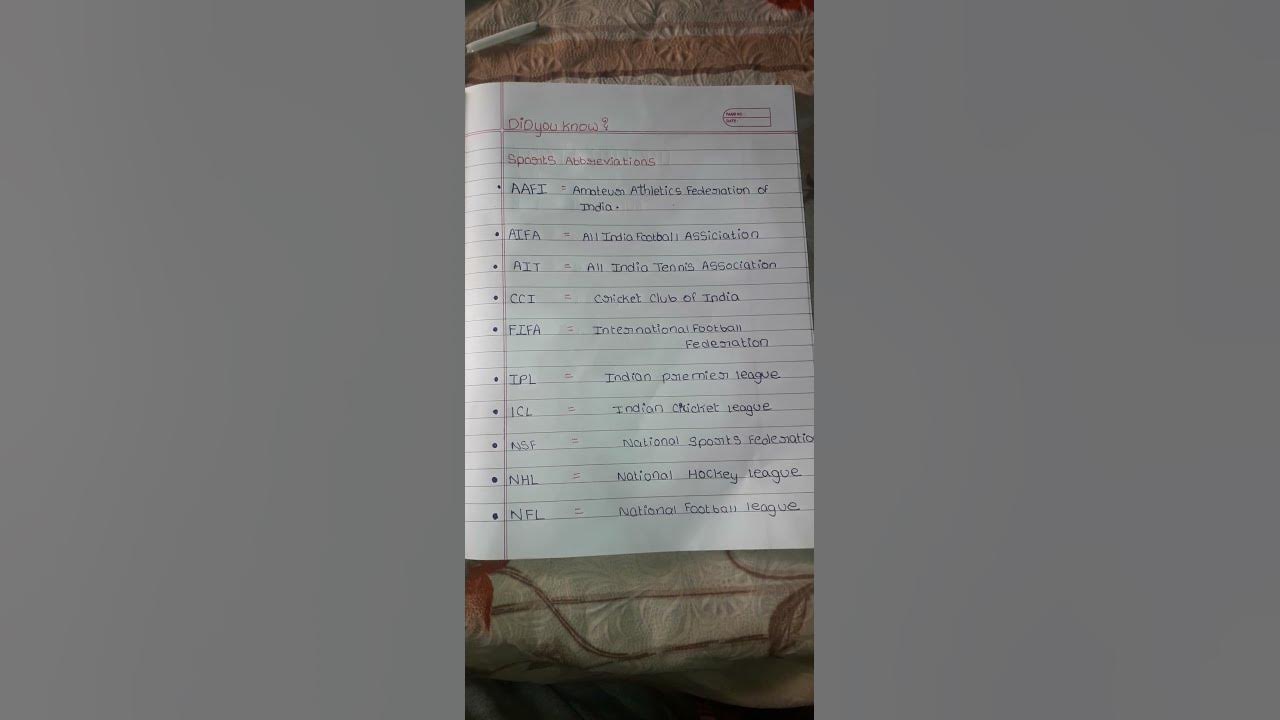 DiD you know?
PAGE NO.
DATE
Sports Abbreviations
• AAFI = Amateur Athletics Federation of
India.
• AIFA = All India Football ASSiciation
• AIT = All India Tennis ASSociation
• CCI = Cricket Club of India
• FIFA = International Football
Federation
• IPL = Indian premier league
• ICL = Indian Cricket league
• NSF = National Sports Federatio
• NHL = National Hockey league
• NFL = National Football league